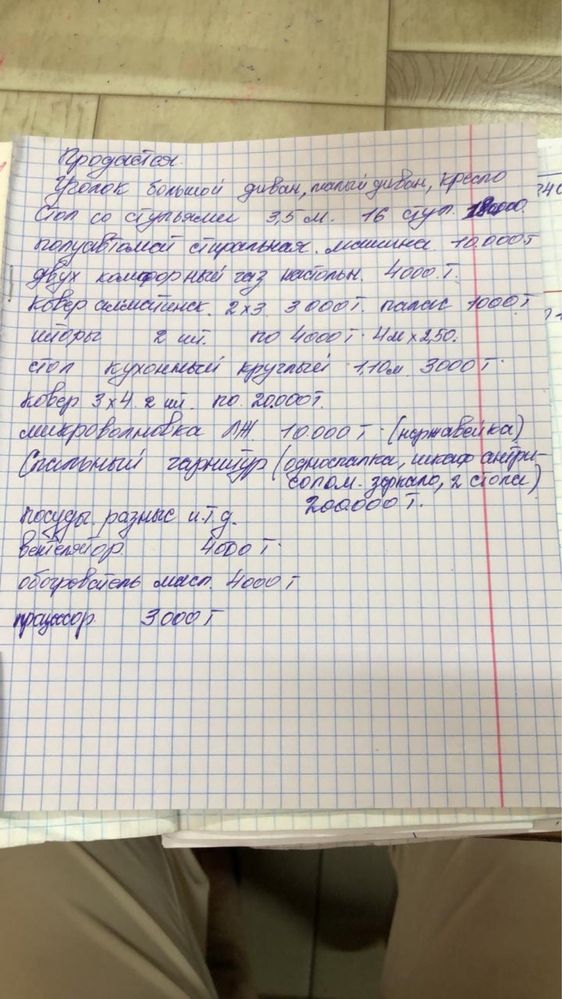 Продается.
Уголок большой диван, малый диван, кресло
Стол со стульями 3,5 м. 16 стул.
полуавтомат стиральная. машина 10.000т
двух комфорный газ настольн. 4000.Т.
Ковер алматинск. 2х3. 3000т. палас 1000Т
шторы 2 шт. по 4000т. 4м х 2,50.
стол кухонный круглый 1,10м. 3000Т.
Ковер 3х4 2 шт. по 20.000т.
микроволновка ЛЖ. 10.000Т. (нержавейка)
Спальный гарнитур (односпалка, шкаф антри-
солом. зеркало, 2 стола)
200.000Т.
посуды разные и.т.д.
вентелятор 4000Т.
обогреватель масл. 4000Т
3000Т